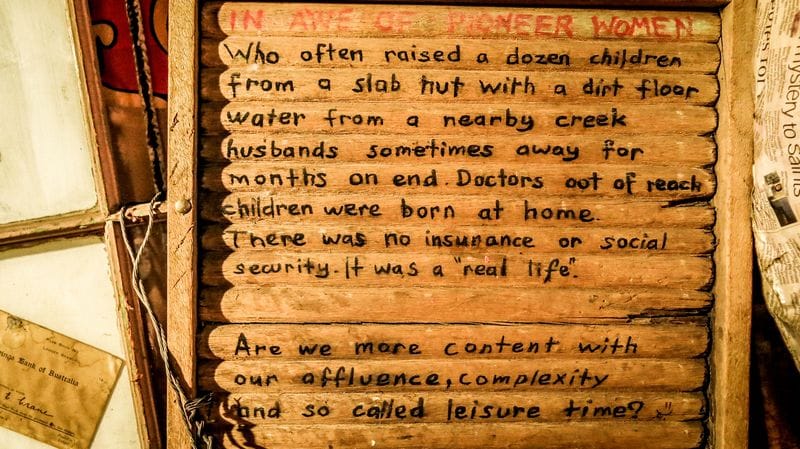 IN AWE OF PIONEER WOMEN
Who often raised a dozen children
from a slab hut with a dirt floor
water from a nearby creek
husbands sometimes away for
months on end. Doctors out of reach
children were born at home.
There was no insurance or social
security. It was a "real life".
Are we more content with
our affluence, complexity
and so called leisure time?
mystery to
Bank of Australia